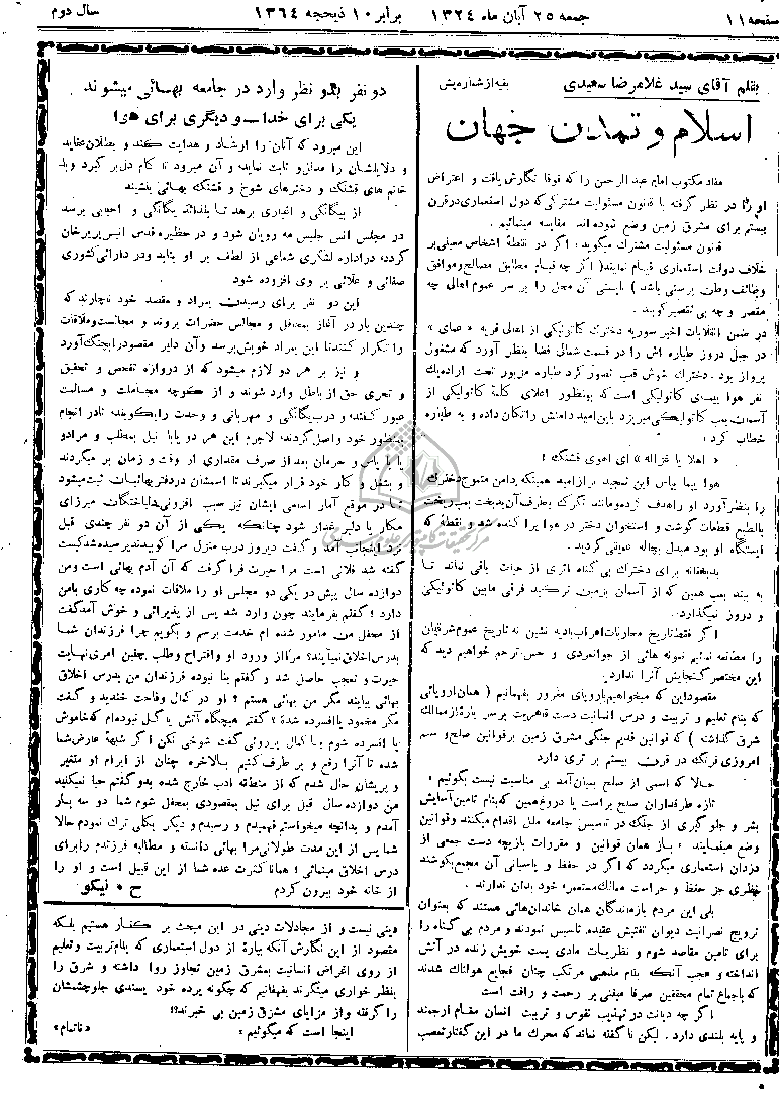 صفحه ۱۱
جمعه ۲۵ آبان ماه ۱۳۲۴ برابر ۱۰ ذیحجه ۱۳۶۴
سال دوم
بقلم آقای سید غلامرضا سعیدی
بقیه از شماره پیش
اسلام و تمدن جهان
مفاد مکتوب امام عبدالرحمن را که فوقا نگارش یافت و اعتراض
او را در نظر گرفته با قانون مسئولیت مشترکی که دول استعماری در قرن
بیستم برای مشرق زمین وضع نموده اند مقایسه مینمائیم.
قانون مسئولیت مشترک میگوید: اگر در نقطهٔ اشخاص معینی بر
خلاف دولت استعماری قیام نمایند (اگر چه قیام مطابق مصالح و موافق
وظائف وطن پرستی باشد) بایستی آن محل را بر سر عموم اهالی چه
مقصر و چه بی تقصیر کوبید.
در ضمن انقلابات اخیر سوریه دخترک کاتولیکی از اهالی قریه
در جبل دروز طیاره اش را در قسمت شمالی فضا بنظر آورد که مشغول
پرواز بود. دخترک خوش قلب تصور کرد طیاره مزبور تحت اراده یک
نفر هوا پیمای کاتولیکی است که بمنظور اعلای کلمهٔ کاتولیکی از
آسمان بمب کاتولیکی میریزد باین امید دامنش را تکان داده و به طیاره
خطاب کرد:
« اهلا یا غزاله » ای آهوی قشنگ!
هوا پیما بپاس این تمجید براز امید همینکه دامن متموج دخترک
را بنظر آورد او را هدف کرده و مانند تگرگ بطرف آن بدبخت بمب ریخت
بالطبع قطعات گوشت و استخوان دختر در هوا پراکنده شد و نقطهٔ که
ایستگاه او بود مبدل بچاله عمیقی گردید.
بدبختانه برای دخترک بی گناه اثری از حیات باقی نماند تا
به بیند بمب همین که از آسمان بزمین ترکید فرقی مابین کاتولیکی
و دروز نمیگذارد.
اگر فقط تاریخ محاربات اعراب بادیه نشین نه تاریخ عموم شرقیان
را مطالعه نمائیم نمونه هائی از جوانمردی و حس ترحم خواهیم دید که
این مختصر گنجایش آنرا ندارد.
مقصود این که میخواهیم باروپای مغرور بفهمانیم (همان اروپائی
که بنام تعلیم و تربیت و درس انسانیت دست قاهریت بر سر پارهٔ از ممالک
شرق گذاشت) که قوانین قدیم جنگی مشرق زمین بر قوانین صلح و سلم
امروزی فرنگ در قرن بیستم برتری دارد
حالا که اسمی از صلح بمیان آمد بی مناسبت نیست بگوئیم:
تازه طرفداران صلح براست یا دروغ همین که بنام تامین آسایش
بشر و جلوگیری از جنگ در تاسیس جامعه ملل اقدام میکنند و قوانین
وضع مینمایند، باز همان قوانین و مقررات بازیچه دست جمعی از
دزدان استعماری میگردد که اگر در حفظ و پاسبانی آن مجمع بکوشند
نظری جز حفظ و حراست ممالک مستعمره خود بدان ندارند.
بلی این مردم بازماندگان همان خاندانهائی هستند که بعنوان
ترویج نصرانیت دیوان تفتیش عقیده تاسیس نمودند و مردم بی گناه را
برای تامین مقاصد شوم و نظریات مادی پست خویش زنده در آتش
انداخته و عجب آنکه بنام مذهبی مرتکب چنان فجایع هولناک شدند
که باجماع تمام محققین صرفا مبنی بر رحمت و رأفت است
اگر چه دیانت در تهذیب نفوس و تربیت انسان مقام ارجمند
و پایه بلندی دارد. لیکن ناگفته نماند که محرک ما در این گفتار تعصب
دو نفر بدو نظر وارد در جامعه بهائی میشوند
یکی برای خداست و دیگری برای هوا
این میرود که آنان را ارشاد و هدایت کند و بطلان عقاید
و دلایلشان را مدلل و ثابت نماید و آن میرود تا کام دل بر گیرد و با
خانم های قشنگ و دخترهای شوخ و قشنگ بهائی بنشیند
از بیگانگی و اغیاری برهد تا بلذائذ یگانگی و احبابی برسد
در مجلس انس جلیس مه رویان شود و در حظیره قدس انیس پریرخان
گردد؛ در اداره لشگری شعاعی از لطف بر او بتابد و در دارائی کشوری
صفائی و علائی بر وی افزوده شود
این دو نفر برای رسیدن بمراد و مقصد خود ناچارند که
چندین بار در آغاز بمحافل و مجالس حضرات بروند و مجالست و ملاقات
را تکرار کنند تا این بمراد خویش برسد و آن دلبر مقصود را بچنگ آورد
و نیز بر هر دو لازم میشود که از دروازه تفحص و تحقیق
و تحری حق از باطل وارد شوند و از کوچه مجاملات و مسالمت
عبور کنند؛ و درب یگانگی و مهربانی و وحدت را بکوبند؛ تا در انجام
بمنظور خود واصل گردند؛ لاجرم این هر دو یا با نیل بمطلب و مراد و
یا با یأس و حرمان بعد از صرف مقداری از وقت و زمان بر میگردند
و بشغل و کار خود قرار میگیرند تا اسمشان در دفتر بهائیات ثبت میشود
تا در موقع آمار اسامی ایشان نیز سبب افزونی دلباختگان میرزای
مکار یا دلبر غدار شود چنانکه یکی از آن دو نفر چندی قبل
نزد اینجانب آمد و گفت دیروز درب منزل مرا کوبیدند پرسیده شد کیست
گفته شد فلانی است مرا حیرت فرا گرفت که آن آدم بهائی است و من
دوازده سال پیش در یکی دو مجلس او را ملاقات نموده چه کاری با من
دارد؛ گفتم بفرمایند چون وارد شد پس از پذیرائی و خوش آمد گفت
از محفل من مامور شده ام خدمت برسم و بگویم چرا فرزندان شما
بدرس اخلاق نمیآیند؟ مرا از ورود او و اقتراح و طلب چنین امری نهایت
حیرت و تعجب حاصل شد و گفتم بنا نبوده فرزندان من بدرس اخلاق
بهائی بیایند مگر من بهائی هستم؟ او در کمال وقاحت خندید و گفت
مگر مخمود یا افسرده شدهٔ؟ گفتم هیچگاه آتش یا گل نبوده ام که خاموش
یا افسرده شوم با کمال پرروئی گفت شوخی نکن اگر شبههٔ عارض شما
شده تا آنرا رفع و بر طرف کنیم بالاخره چنان از ابرام او متغیر
و پریشان حال شدم که از منطقه ادب خارج شده بدو گفتم حیا نمیکنید
من دوازده سال قبل برای نیل بمقصودی بمحفل شوم شما دو سه بار
آمدم و بدانچه میخواستم فهمیدم و رسیدم و دیگر بکلی ترک نمودم حالا
شما پس از این مدت طولانی مرا بهائی دانسته و مطالبه فرزندم را برای
درس اخلاق مینمائی؛ همانا کثرت عده شما از این قبیل است و او را
از خانه خود بیرون کردم
ح * نیکو
دینی نیست و از مجادلات دینی در این مبحث بر کنار هستیم بلکه
مقصود از این نگارش آنکه بپارهٔ از دول استعماری که بنام تربیت و تعلیم
از روی اغراض انسانیت بمشرق زمین تجاوز روا داشته و شرق را
بنظر خواری مینگرند بفهمانیم که چگونه پرده خود پسندی جلو چشمشان
را گرفته و از مزایای مشرق زمین بی خبرند؟!
اینجا است که میگوئیم:
« ناتمام »